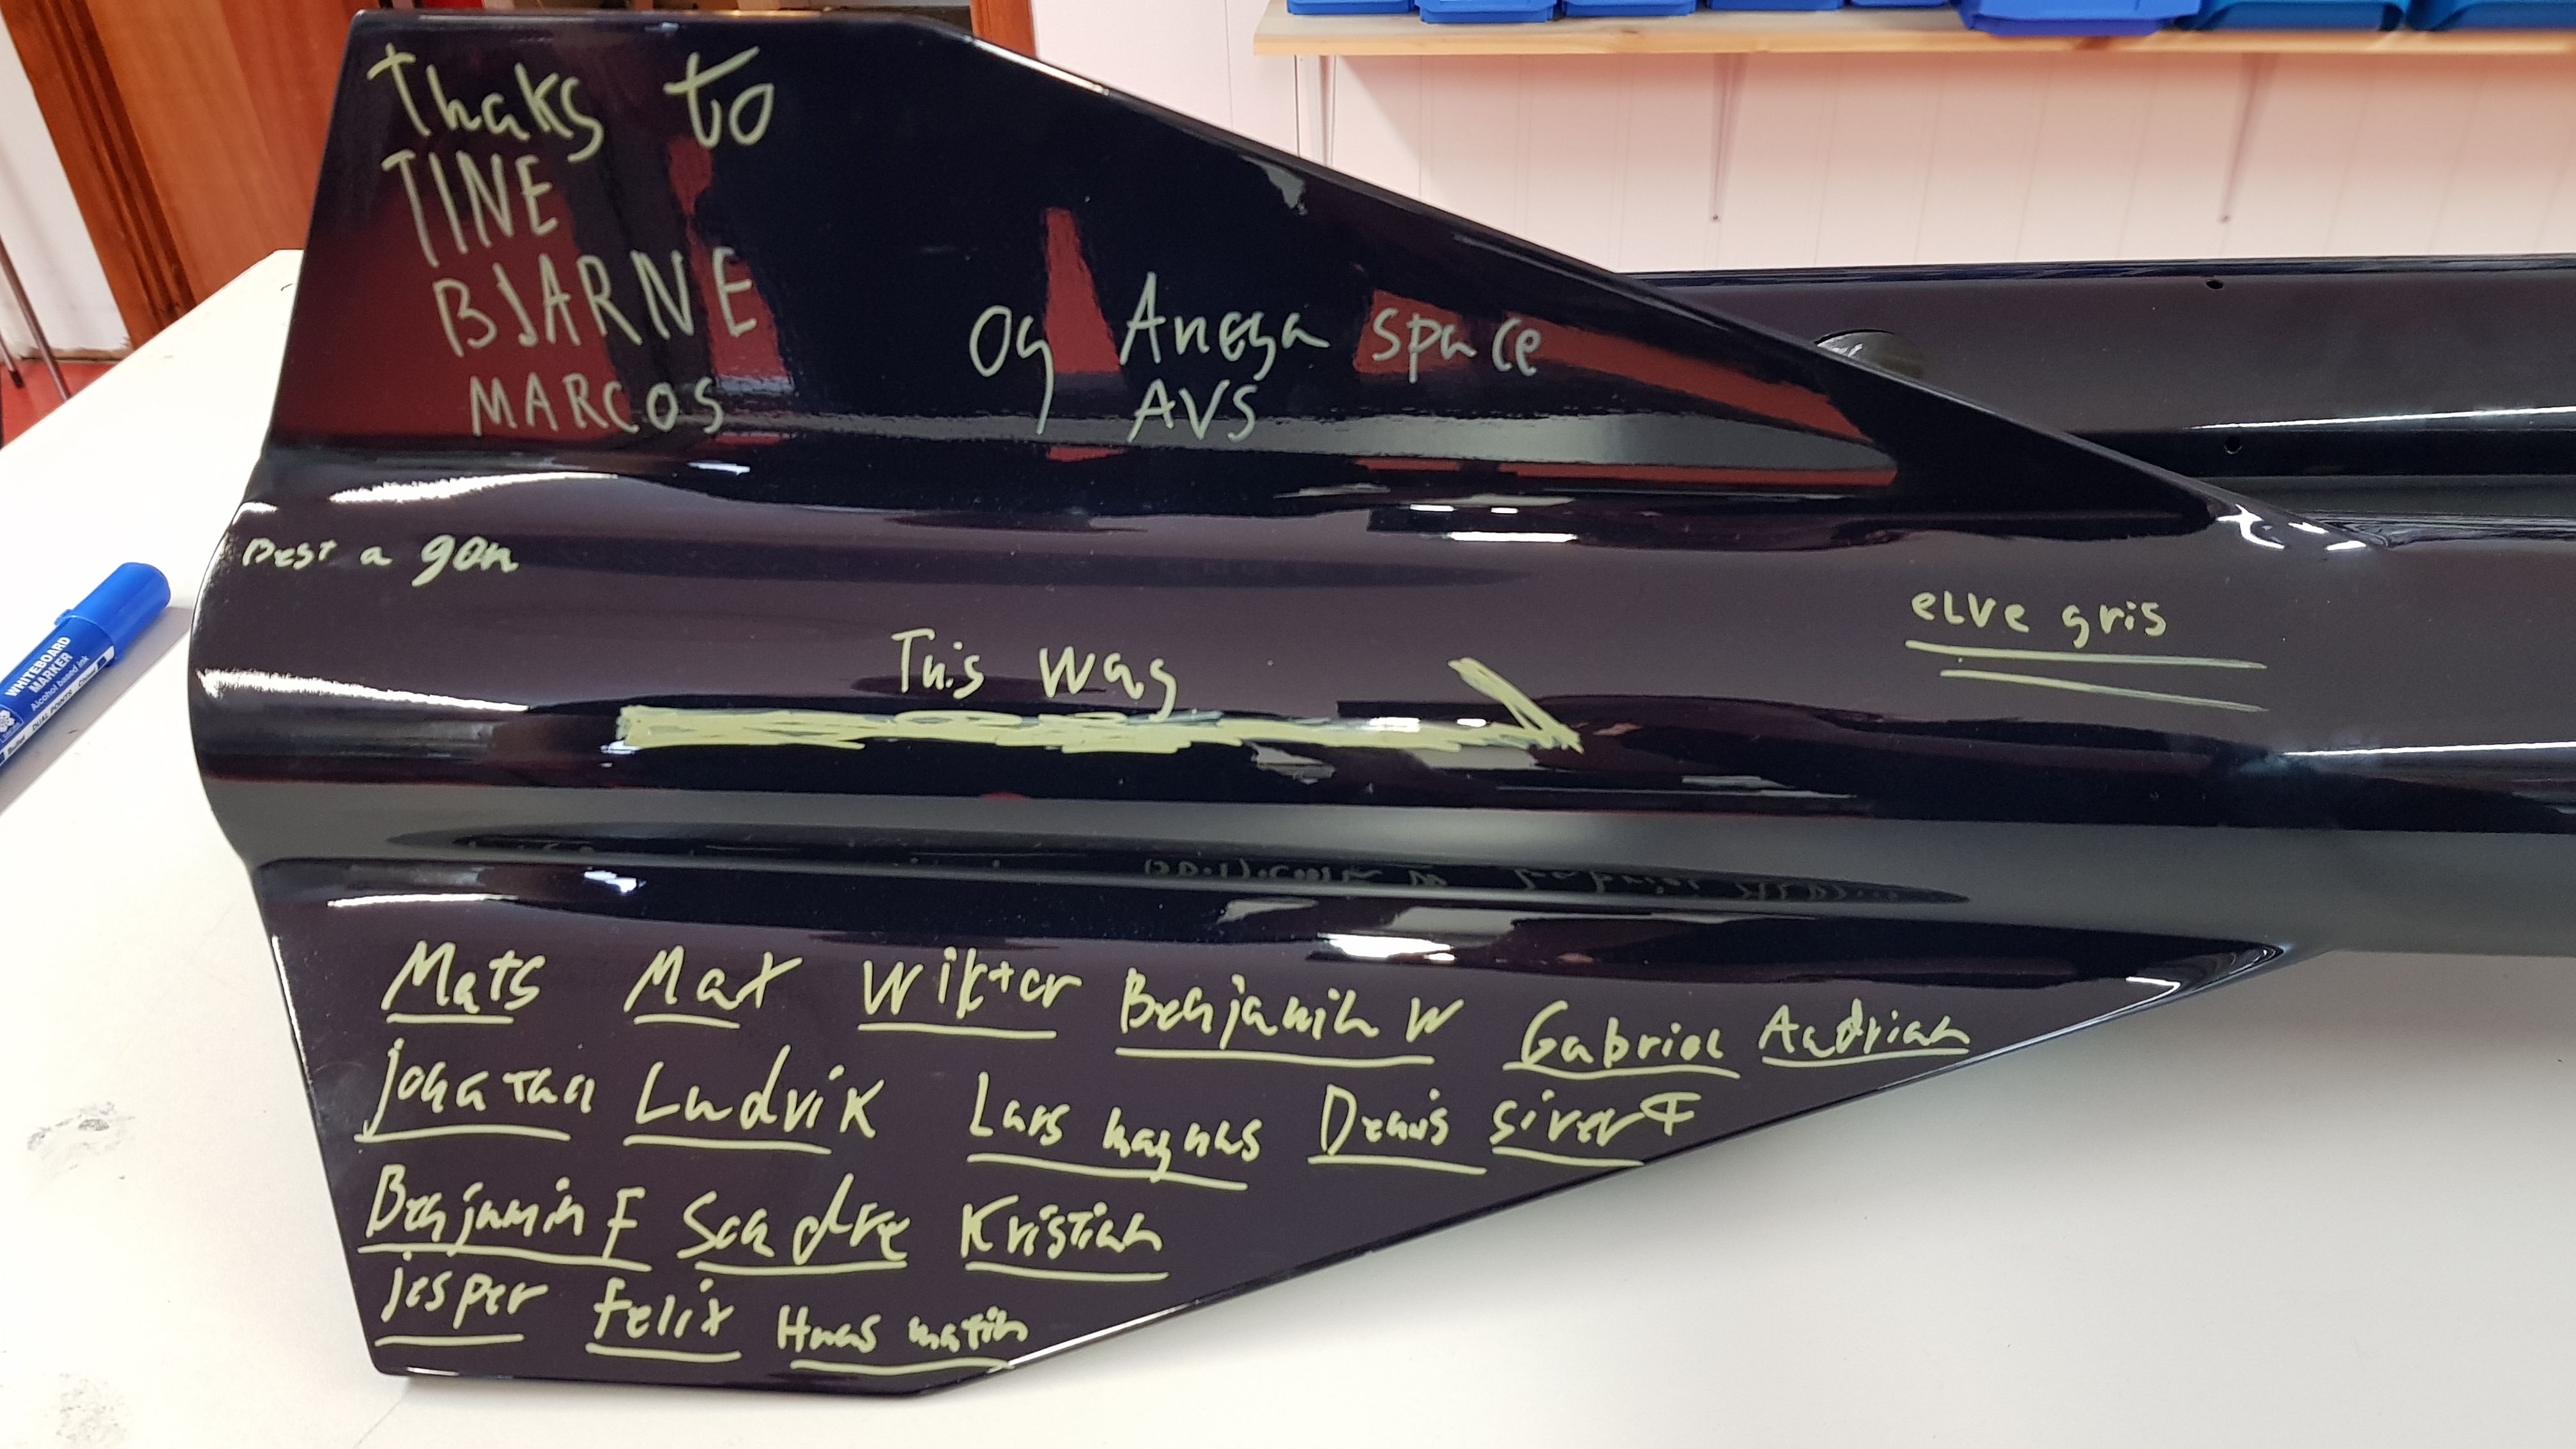 Thaks to
TINE
BJARNE
MARCOS
Og Anøya space
AVS
gon
This way
eLve gris
Mats Max Wiktor Benjamin W Gabriel Aadrian
jonatan Ludvik Lars magnus Denis sivert
Benjamin F Sandre Kristian
jesper Felix Haas matin
WHITEBOARD
MARKER
Alcohol based ink